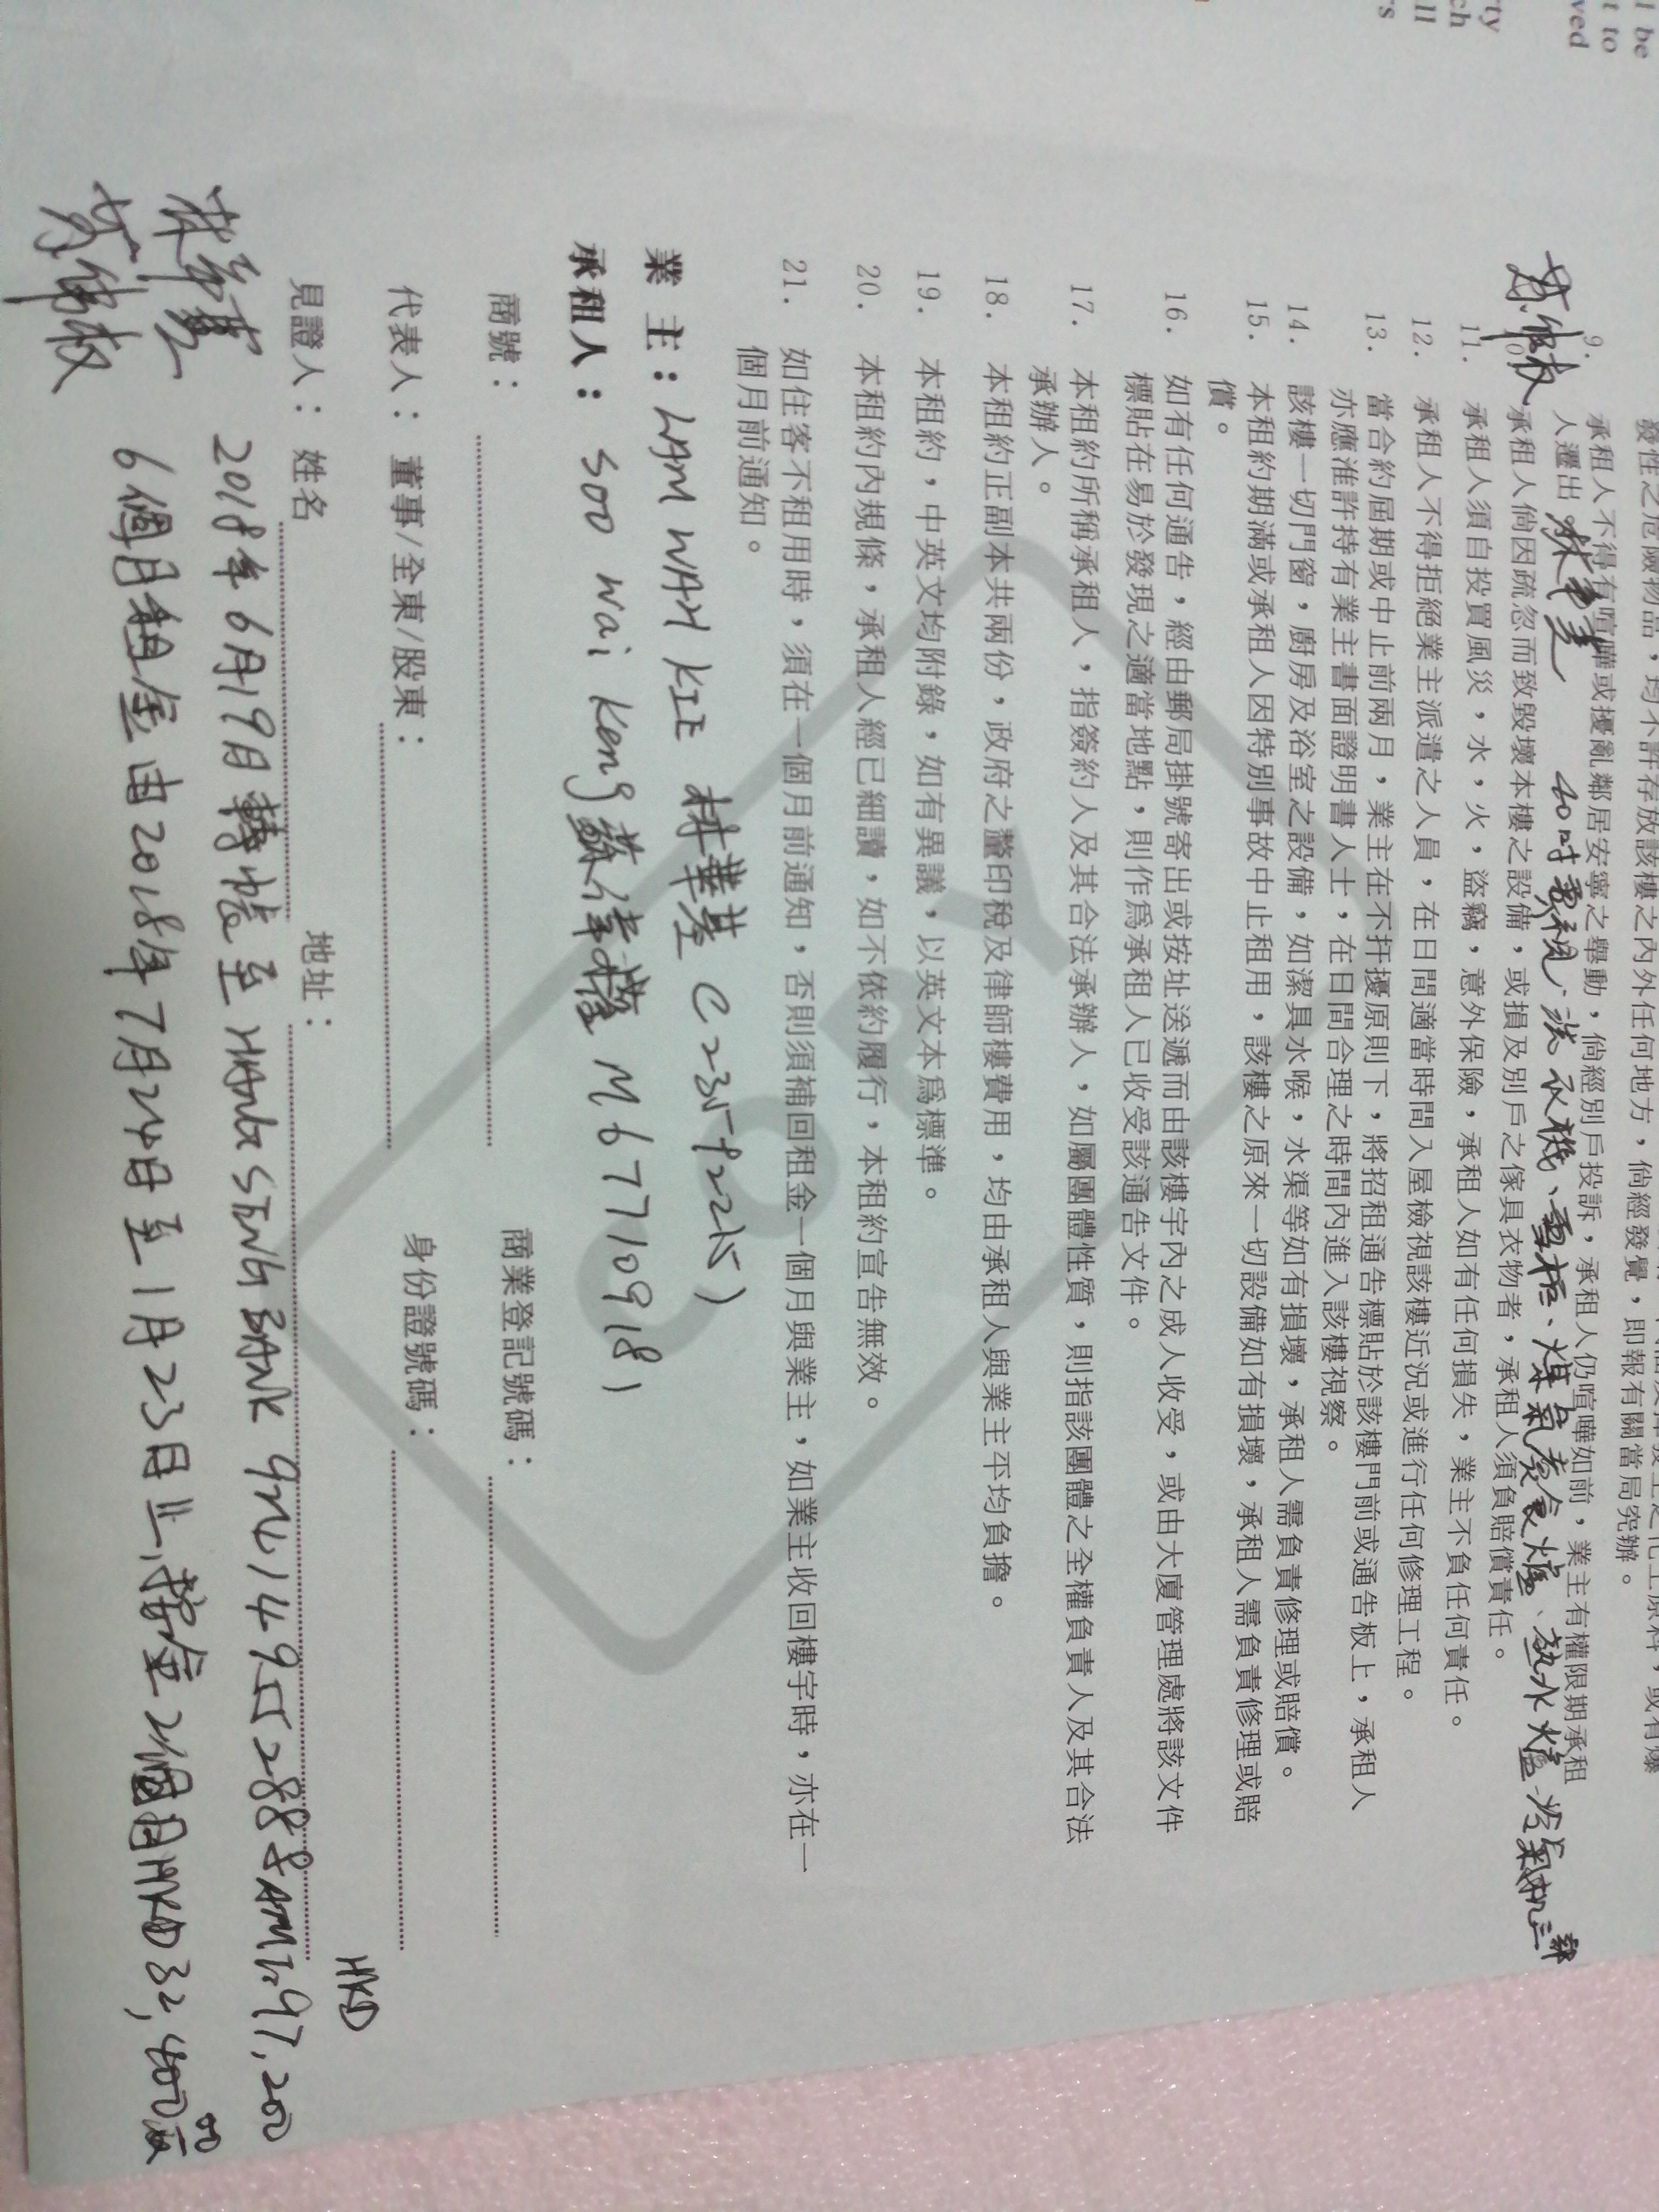 l be
t to
ved
ty
ch
ll
's
發性之危險物品，均不許存放該樓之內外任何地方，倘經發覺，即報有關當局究辦。
9. 承租人不得有喧嘩或擾亂鄰居安寧之舉動，倘經別戶投訴，承租人仍喧嘩如前，業主有權限期承租
人遷出。
40吋電視、洗衣機、雪柜、煤氣煮食爐、熱水爐、冷氣機三部
承租人倘因疏忽而致毀壞本樓之設備，或損及別戶之傢具衣物者，承租人須負賠償責任。
11. 承租人須自投買風災，水，火，盜竊，意外保險，承租人如有任何損失，業主不負任何責任。
12. 承租人不得拒絕業主派遣之人員，在日間適當時間入屋檢視該樓近況或進行任何修理工程。
13. 當合約屆期或中止前兩月，業主在不扞擾原則下，將招租通告標貼於該樓門前或通告板上，承租人
亦應准許持有業主書面證明書人士，在日間合理之時間內進入該樓視察。
14. 該樓一切門窗，廚房及浴室之設備，如潔具水喉，水渠等如有損壞，承租人需負責修理或賠償。
15. 本租約期滿或承租人因特別事故中止租用，該樓之原來一切設備如有損壞，承租人需負責修理或賠
償。
16. 如有任何通告，經由郵局掛號寄出或按址送遞而由該樓宇內之成人收受，或由大廈管理處將該文件
標貼在易於發現之適當地點，則作為承租人已收受該通告文件。
17. 本租約所稱承租人，指簽約人及其合法承辦人，如屬團體性質，則指該團體之全權負責人及其合法
承辦人。
18. 本租約正副本共兩份，政府之釐印稅及律師樓費用，均由承租人與業主平均負擔。
19. 本租約，中英文均附錄，如有異議，以英文本為標準。
20. 本租約內規條，承租人經已細讀，如不依約履行，本租約宣告無效。
21. 如住客不租用時，須在一個月前通知，否則須補回租金一個月與業主，如業主收回樓宇時，亦在一
個月前通知。
COPY
業 主：LAM WAH KIE 林華基
承租人：SOO Wai Keng 蘇偉 M67710918)
商號： 商業登記號碼：
代表人：董事/全東/股東： 身份證號碼：
見證人：姓名 地址：
HKD
2018年6月19日轉帳至HANG SENG BANK AMT:97,200
6個月租金由2018年7月24日至1月23日 按金2個月HKD32,400